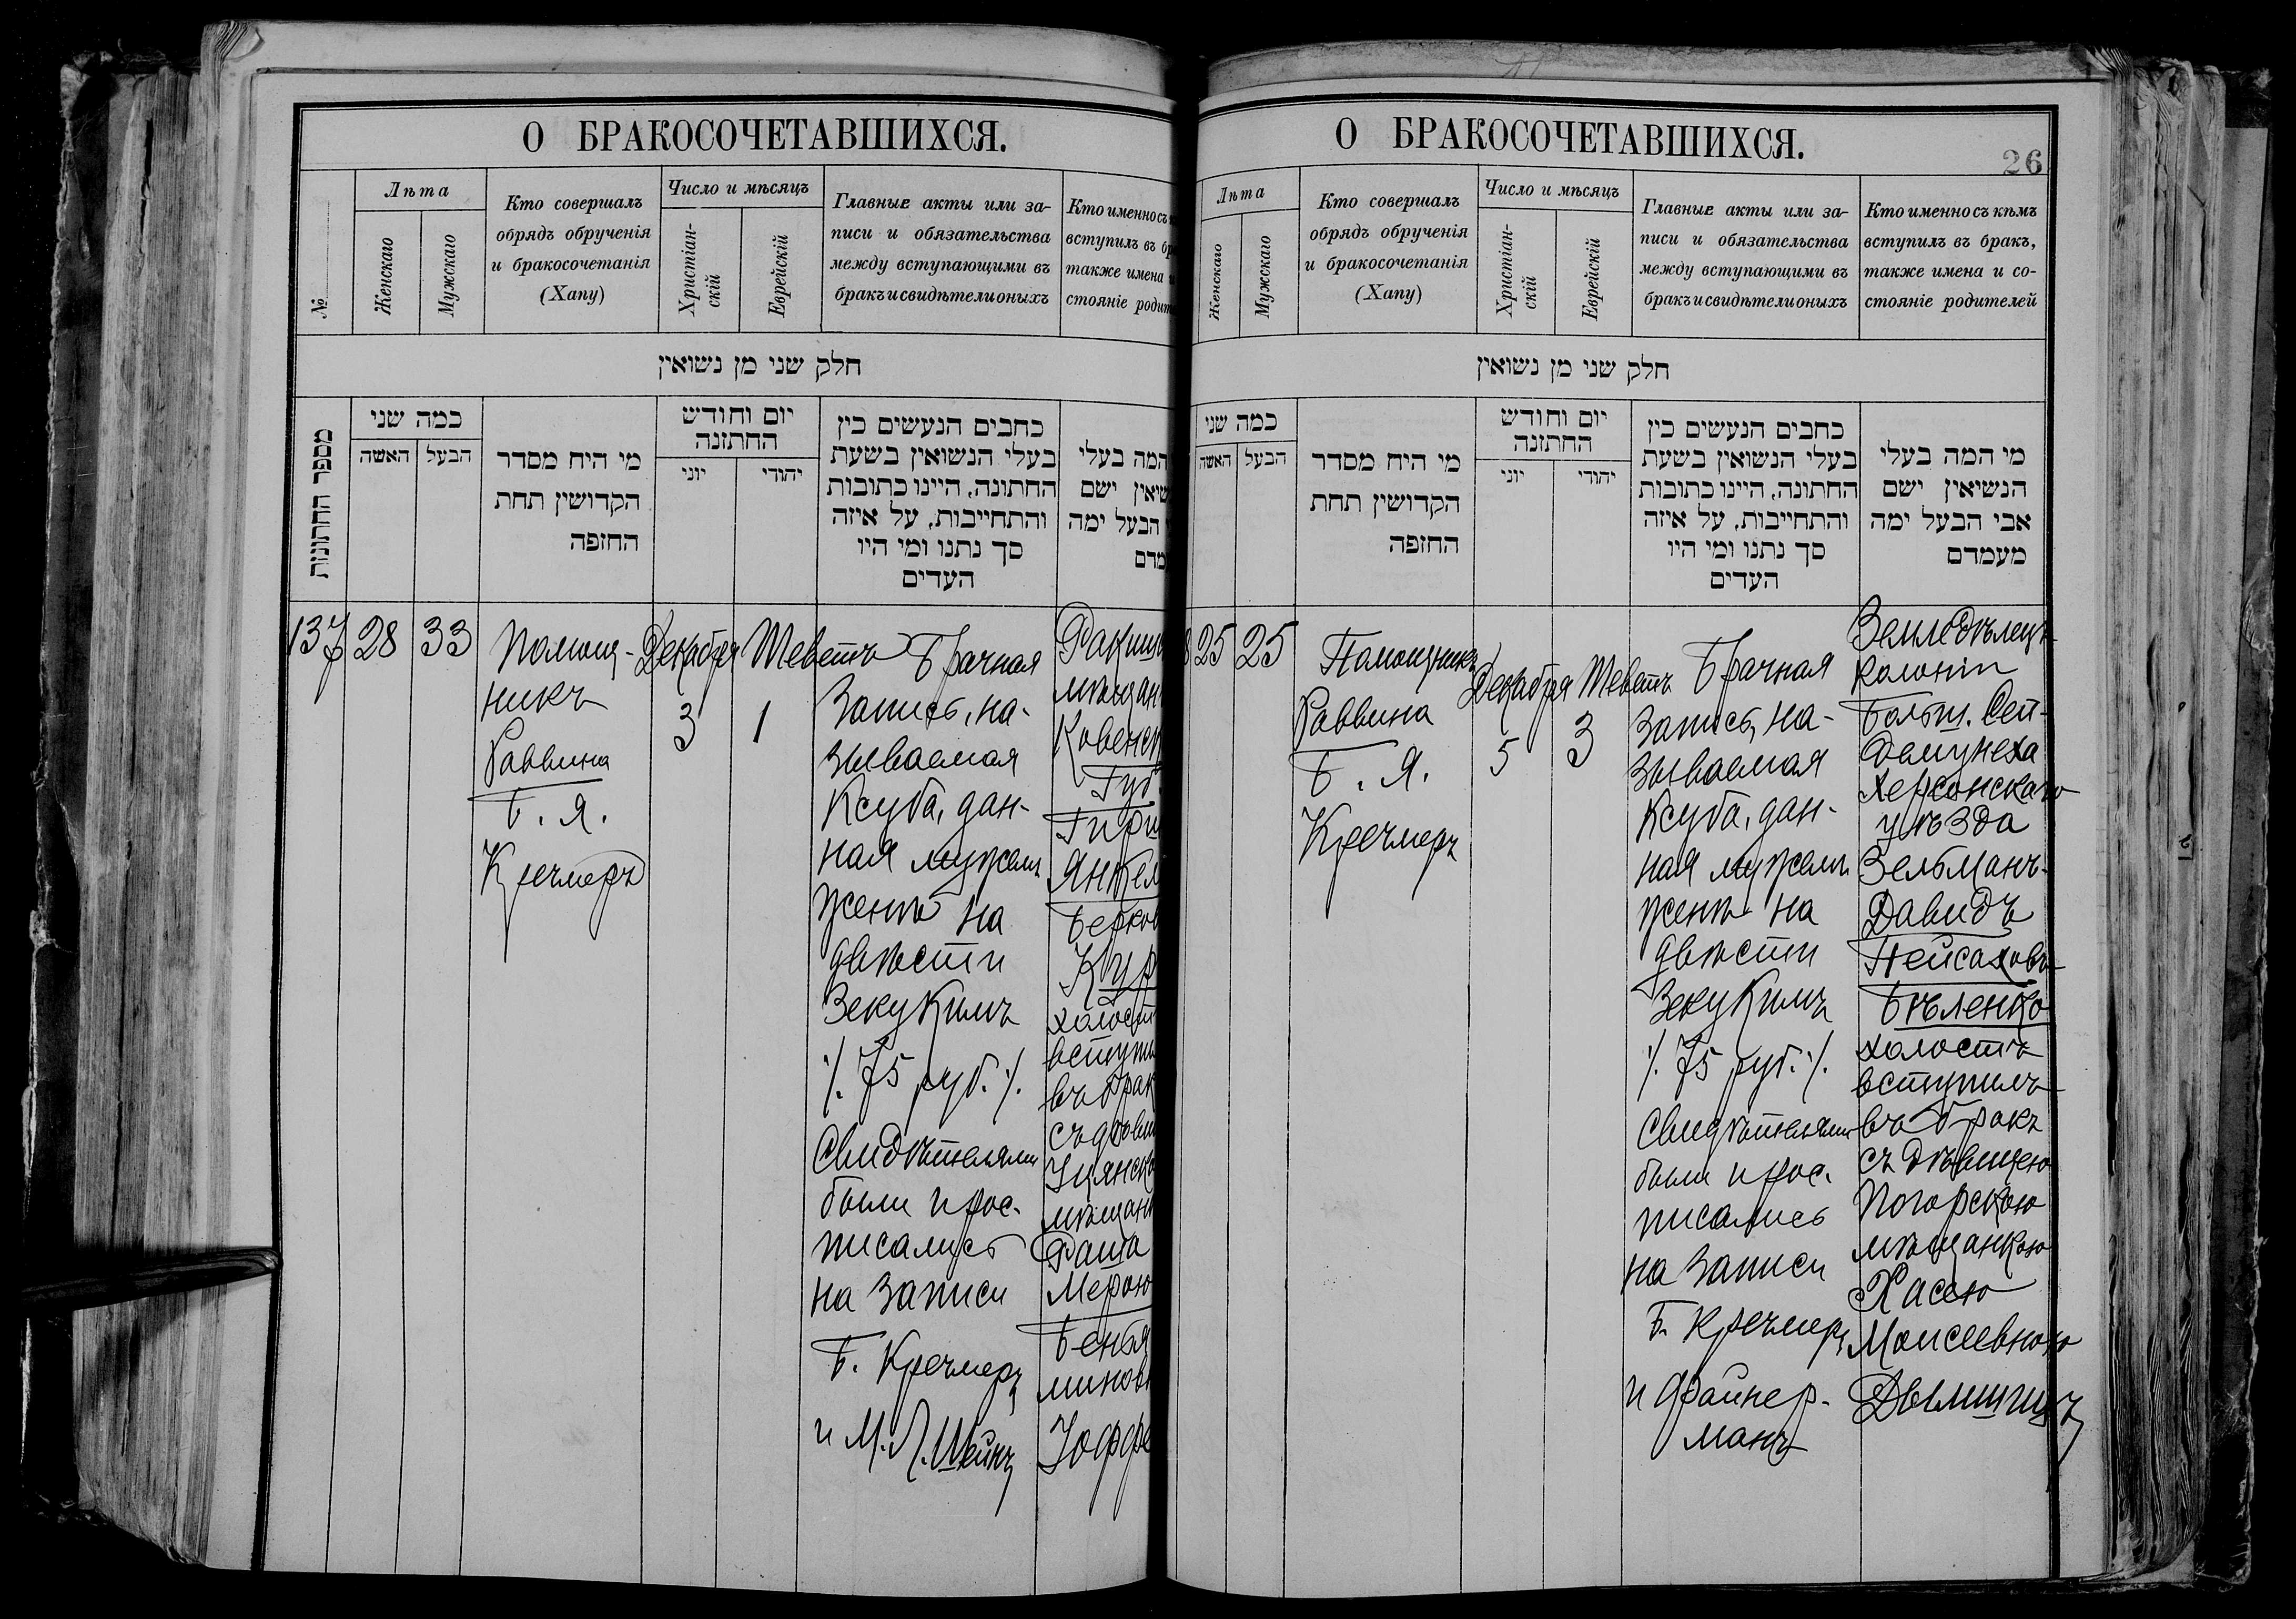 О БРАКОСОЧЕТАВШИХСЯ.
№
Лѣта
Женскаго
Мужскаго
Кто совершалъ
обрядъ обрученія
и бракосочетанія
(Хапу)
Число и мѣсяцъ
Христіан-
скій
Еврейскій
Главные акты или за-
писи и обязательства
между вступающими въ
бракъ и свидѣтели оныхъ
Кто именно съ
вступилъ въ бр
также имена
стояніе родит
חלק שני מן נשואין
מספר החתונות
כמה שני
האשה
הבעל
מי היח מסדר
הקדושין תחת
החזפה
יום וחודש
החתזנה
יוני
יהודי
כחבים הנעשים כין
בעלי הנשואין בשעת
החתונה, היינו כתובות
והתחייבות, על איזה
סך נתנו ומי היו
העדים
המה בעלי
שיאין ישם
הבעל ימה
מדם
137
28
33
Помощ-
никъ
Раввина
Б. Я.
Кречмеръ
Декабря
3
Теветъ
1
Брачная
запись, на-
зываемая
Ксуба, дан-
ная мужемъ
женѣ на
двѣсти
Зекукимъ
·/. 75 руб. ·/.
Свидѣтелями
были и рос-
писались
на записи
Б. Кречмеръ
и М. Л. Шейнъ
Ракиш
мѣщан
Ковенск
Губ
Гирш
Янкел
Берков
Кур
холост
вступи
въ брак
съ дѣви
Уцянско
мѣщан
Фаша
Мерою
Бенья
минов
Іоффе
О БРАКОСОЧЕТАВШИХСЯ.
26
Лѣта
Женскаго
Мужскаго
Кто совершалъ
обрядъ обрученія
и бракосочетанія
(Хапу)
Число и мѣсяцъ
Христіан-
скій
Еврейскій
Главные акты или за-
писи и обязательства
между вступающими въ
бракъ и свидѣтели оныхъ
Кто именно съ кѣмъ
вступилъ въ бракъ,
также имена и со-
стояніе родителей
חלק שני מן נשואין
כמה שני
האשה
הבעל
מי היח מסדר
הקדושין תחת
החזפה
יום וחודש
החתזנה
יוני
יהודי
כחבים הנעשים כין
בעלי הנשואין בשעת
החתונה, היינו כתובות
והתחייבות, על איזה
סך נתנו ומי היו
העדים
מי המה בעלי
הנשיאין ישם
אבי הבעל ימה
מעמדם
8
25
25
Помощникъ
Раввина
Б. Я.
Кречмеръ
Декабря
5
Теветъ
3
Брачная
запись, на-
зываемая
Ксуба, дан-
ная мужемъ
женѣ на
двѣсти
Зекукимъ
·/. 75 руб. ·/.
Свидѣтелями
были и рос-
писались
на записи
Б. Кречмеръ
и Файнер-
манъ
Земледѣлецъ
колоніи
Больш. Сей-
деминуха
Херсонскаго
уѣзда
Зельманъ-
Давидъ
Пейсаховъ
Бѣленко
холостъ
вступилъ
въ бракъ
съ дѣвицею
Погорскою
мѣщанкою
Хасею
Моисеевною
Дымшицъ